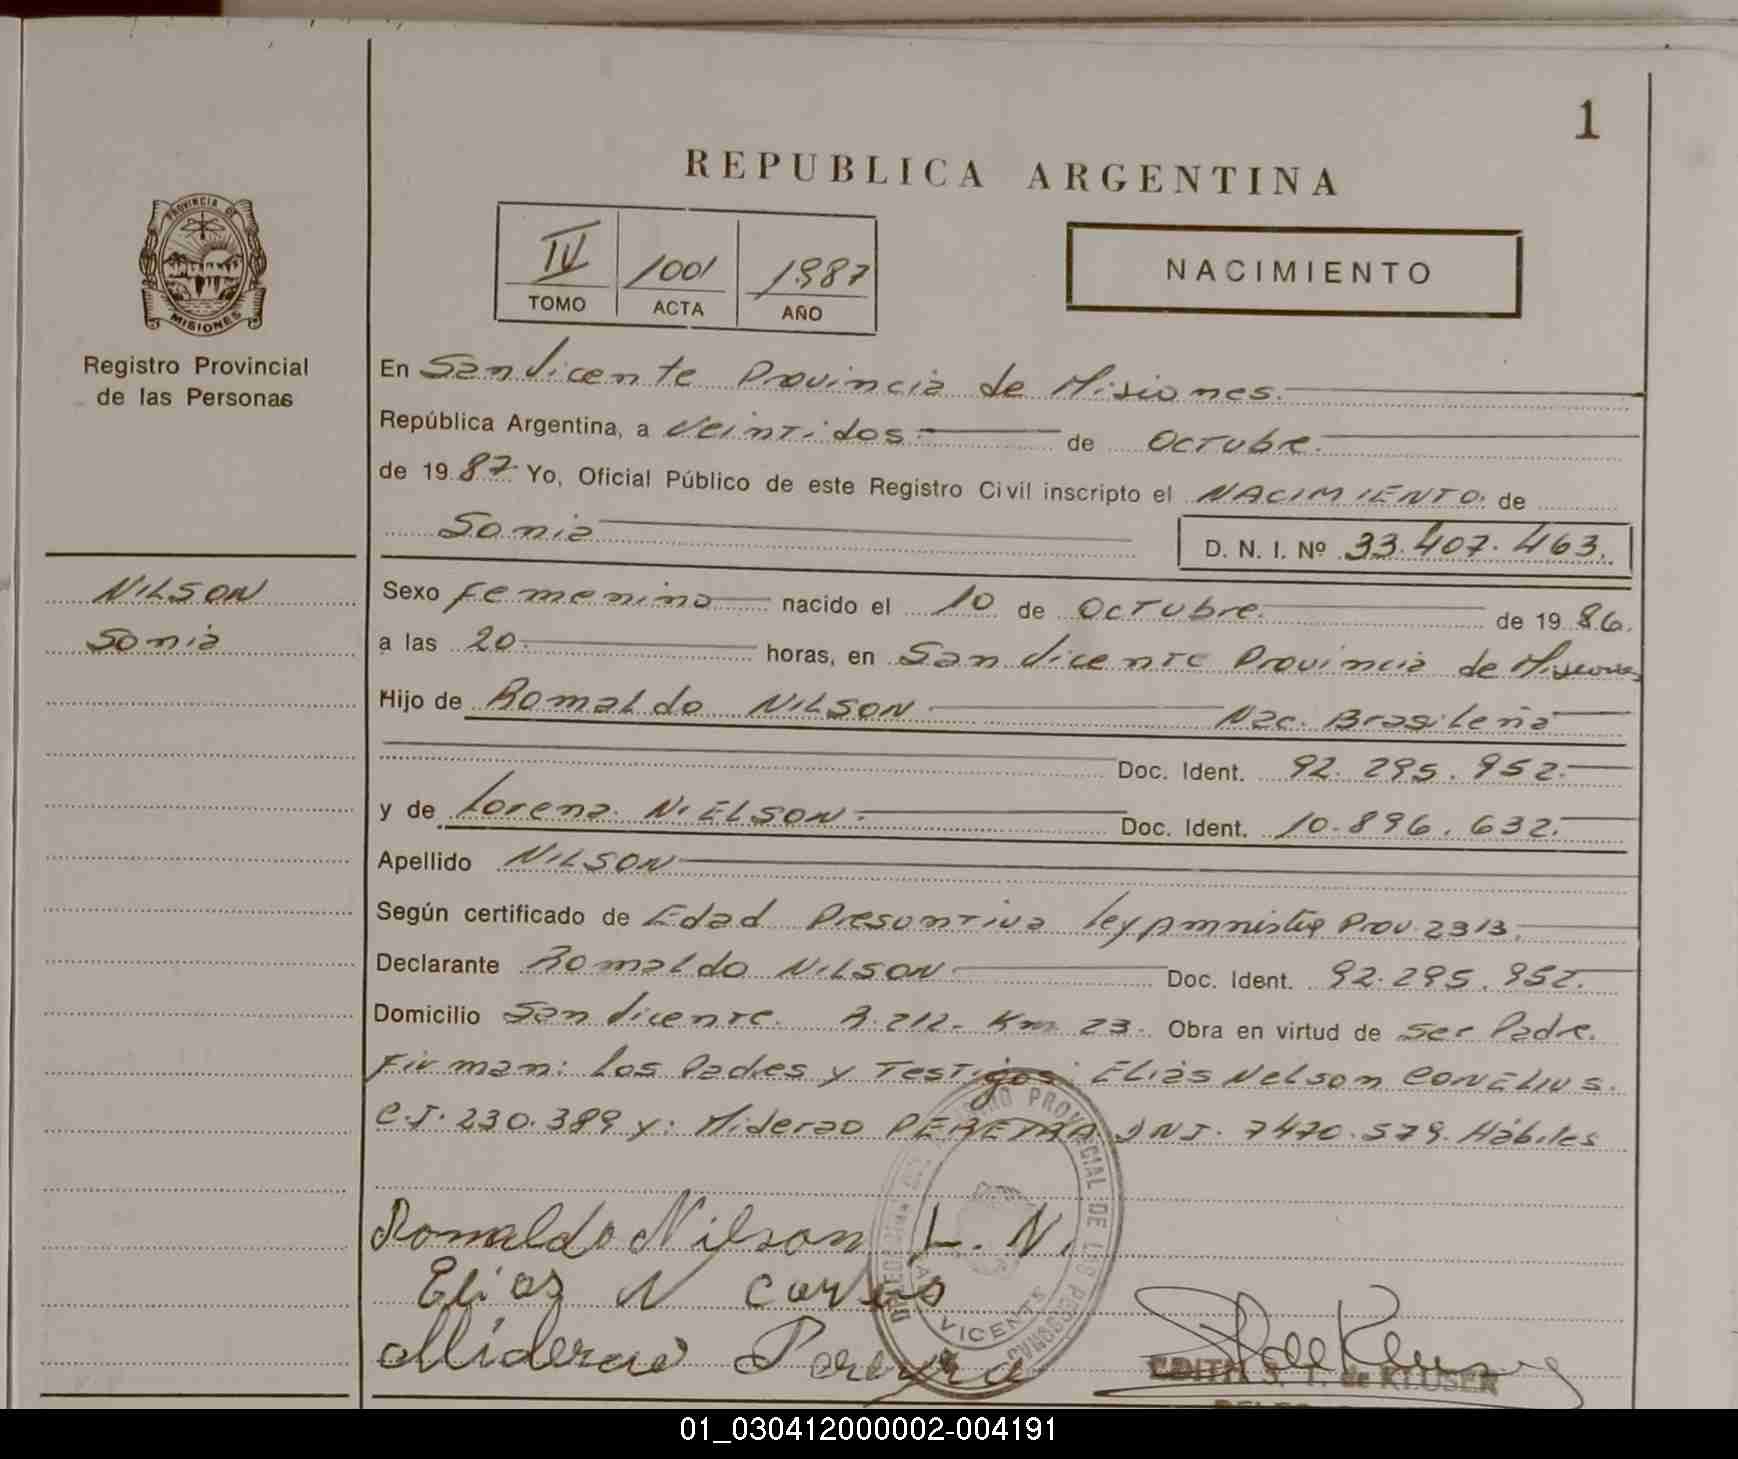 1
REPUBLICA ARGENTINA
PROVINCIA DE
MISIONES
Registro Provincial
de las Personas
IV 1001 1987
TOMO ACTA AÑO
NACIMIENTO
En San Vicente Provincia de Misiones.
República Argentina, a Veintidos de Octubre.
de 1987. Yo, Oficial Público de este Registro Civil inscripto el NACIMIENTO. de
Sonia
D. N. I. Nº 33.407.463.
NILSON
Sonia
Sexo Femenino nacido el 10 de Octubre. de 1986.
a las 20 horas, en San Vicente Provincia de Misiones
Hijo de Romaldo NILSON Nac. Brasileña
Doc. Ident. 92.295.952.
y de Lorena NIELSON. Doc. Ident. 10.896.632.
Apellido NILSON
Según certificado de Edad Presuntiva ley Amnistia Prov. 2313.
Declarante Romaldo NILSON Doc. Ident. 92.295.952.
Domicilio San Vicente. R.212. Km 23. Obra en virtud de Ser Padre.
Firman: Los Padres y Testigos: Eliàs Nelson CONELIUS.
C.I. 230.389 y: Miderao PEREIRA DNI. 7470.579. Hàbiles
Romaldo Nilson L. N.
Elias N
Pereyra
REGISTRO PROVINCIAL DE LAS PERSONAS
VICENTE
EDITH S. T. de KLUSER
01_030412000002-004191